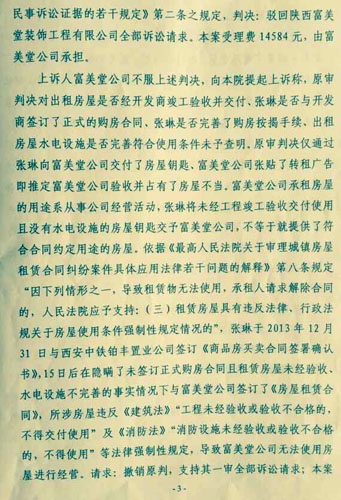 民事诉讼证据的若干规定》第二条之规定，判决：驳回陕西富美
堂装饰工程有限公司全部诉讼请求。本案受理费 14584 元，由富
美堂公司承担。
上诉人富美堂公司不服上述判决，向本院提起上诉称，原审
判决对出租房屋是否经开发商竣工验收并交付、张琳是否与开发
商签订了正式的购房合同、张琳是否完善了购房按揭手续、出租
房屋水电设施是否完善符合使用条件未予查明。原审判决仅通过
张琳向富美堂公司交付了房屋钥匙、富美堂公司张贴了转租广告
即推定富美堂公司验收并占有了房屋不当。富美堂公司承租房屋
的用途系从事公司经营活动，张琳将未经工程竣工验收交付使用
且没有水电设施的房屋钥匙交予富美堂公司，不等于就提供了符
合合同约定用途的房屋。依据《最高人民法院关于审理城镇房屋
租赁合同纠纷案件具体应用法律若干问题的解释》第八条规定
“因下列情形之一，导致租赁物无法使用，承租人请求解除合同
的，人民法院应予支持：（三）租赁房屋具有违反法律、行政法
规关于房屋使用条件强制性规定情况的”，张琳于 2013 年 12 月
31 日与西安中铁铂丰置业公司签订《商品房买卖合同签署确认
书》，15日后在隐瞒了未签订正式购房合同且租赁房屋未经验收、
水电设施不完善的事实情况下与富美堂公司签订了《房屋租赁合
同》，所涉房屋违反《建筑法》“工程未经验收或验收不合格的，
不得交付使用”及《消防法》“消防设施未经验收或验收不合格
的，不得使用”等法律强制性规定，导致富美堂公司无法使用房
屋进行经营。请求：撤销原判，支持其一审全部诉讼请求；本案
-3-